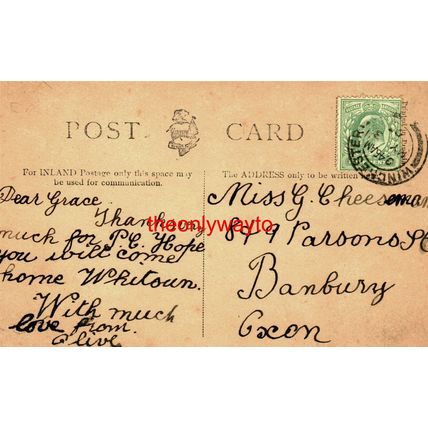 POST CARD
For INLAND Postage only this space may
be used for communication.
The ADDRESS only to be written
Dear Grace.
Thanks so
much for P.C. Hope
you will come
home Whitsun.
With much
love from
Olive
Miss G. Cheeseman
8 & 9 Parsons St
Banbury
Oxon
theonlywayto
WINCHESTER